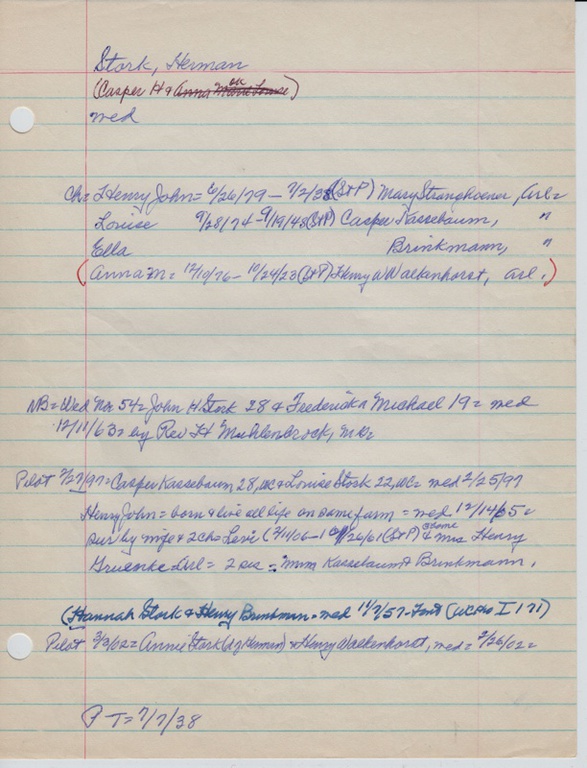 Stork, Herman
(Casper H & Anna Marie Louise)
wed
Ch= Henry John= 6/26/79 - 7/2/38 (StP) Mary Stranghoener, Arl=
Louise 9/28/74 - 9/19/48 (StP) Casper Kassebaum, "
Ella Brinkmann, "
(Anna M= 12/10/76 - 10/24/23 (StP) Henry W Walkenhorst, Arl.)
NB= Wed No 54= John H Stork 28 & Fredericka Michael 19= wed
12/11/63= by Rev FH Muhlenbrock,
Pilot 2/27/97= Casper Kassebaum 28, WC & Louise Stork 22, WC= wed 2/25/97
Henry John= born & live all life on same farm = wed 12/14/05=
sur by wife & 2 ch= Levi (2/11/06-1 /26/61 (StP) @ home & Mrs Henry
Gruenke Arl= 2 sis = Mmm Kassebaum & Brinkmann,
(Hannah Stork & Henry Brinkman= wed 11/7/57- (WCMo I 171)
Pilot 3/3/02= Annie Stork (d/Herman) & Henry Walkenhorst, wed= 2/26/02=
P T= 7/7/38